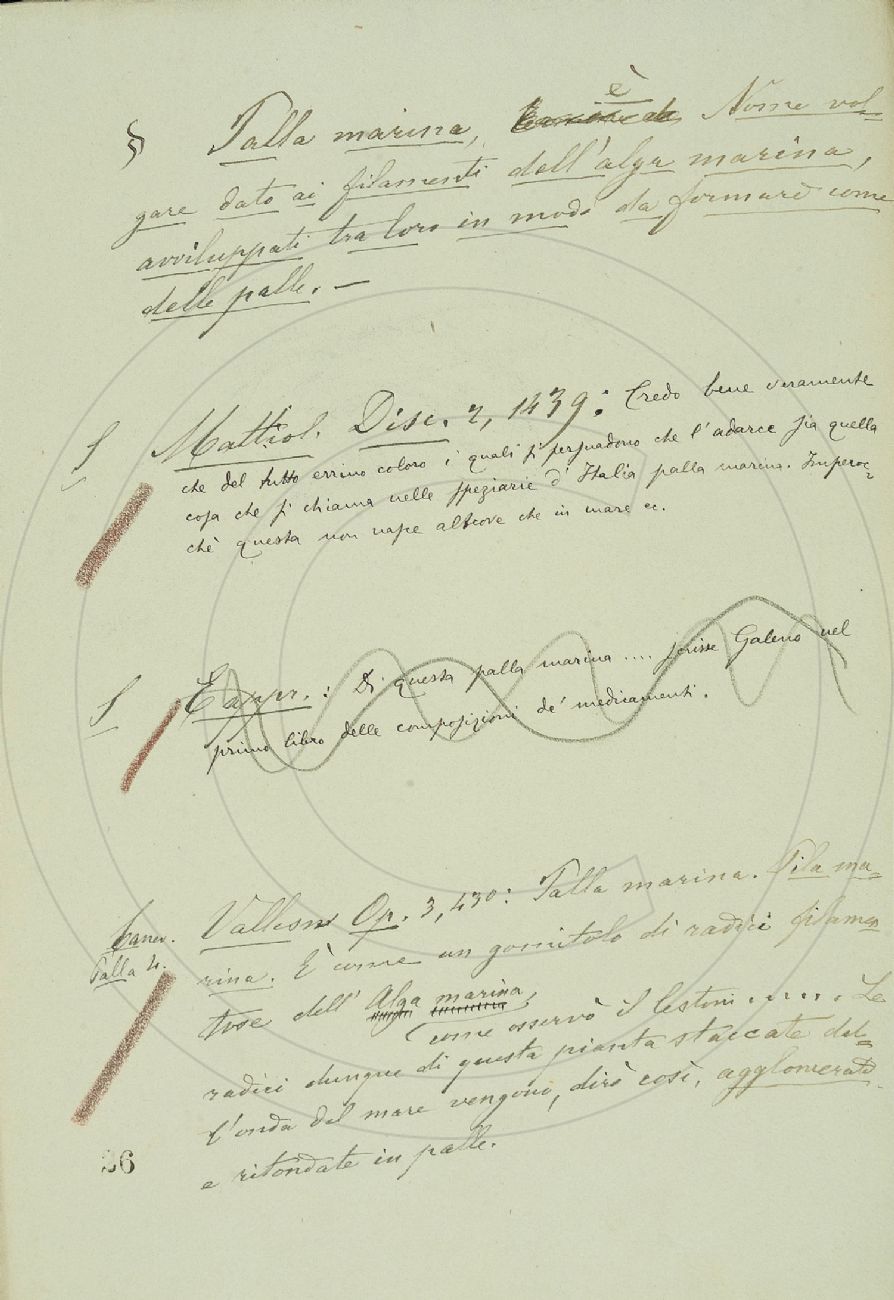 è
§ Palla marina, Nome vol-
gare dato ai filamenti dell'alga marina,
avviluppati tra loro in modo da formare come
delle palle. —
S Mattiol. Disc. 2, 1439: Credo bene veramente
che del tutto errino coloro i quali si persuadono che l'adarce sia quella
cosa che si chiama nelle speziarie d'Italia palla marina. Imperoc-
chè questa non nasce altrove che in mare ec.
S E appr.: Di questa palla marina .... scrisse Galeno nel
primo libro delle composizioni de' medicamenti.
Vallisn. Op. 3, 430: Palla marina. Pila ma-
Palla 4. rina. È come un gomitolo di radici filamen
tose dell' Alga marina,
(come osservò il Cestoni ..... Le
radici dunque di questa pianta staccate dal-
l'onda del mare vengono, dirò così, agglomerate
e ritondate in palle.
26